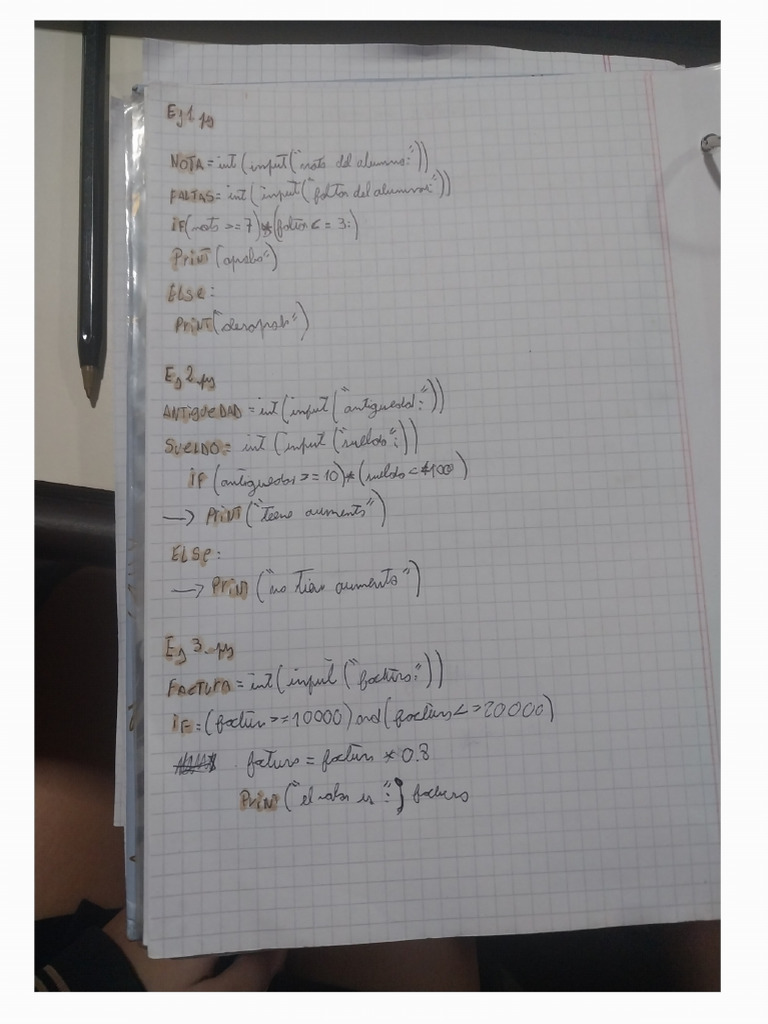 Ej1.py
NOTA=int(input("nota del alumno:"))
FALTAS=int(input("faltas del alumno:"))
if(nota >=7)*(faltas<=3:)
Print(aprobo")
Else:
Print("desaprob")
Ej2.py
ANTIGUEDAD=int(input("antiguedad:"))
SUELDO= int(input("sueldo":))
if(antiguedad>=10)*(sueldo<$100)
→ Print("tiene aumento")
ELSe:
→ Print("no tiene aumento")
Ej3.py
FACTURA=int(input("factura:"))
if:(factur>=10000)and(factura<=20000)
factura=factura*0.8
Print("el valor es":) factura